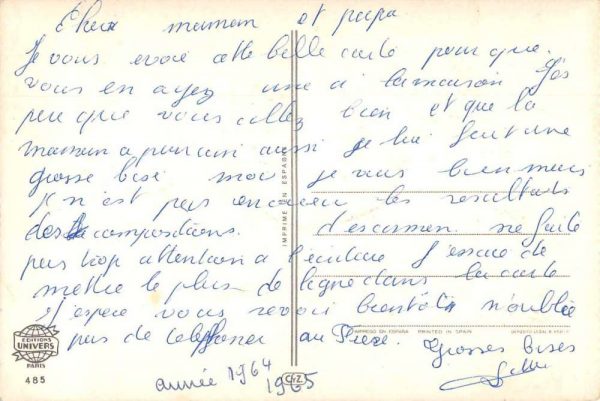 Cher maman et papa
Je vous envoi cette belle carte pour que
vous en ayez une a la maison J'es
pere que vous allez bien et que la
maman a pour ami aussi je lui fait une
grosse bise moi je vous bien mais
je n'est pas encore les resultats
des compositions. d'examen. ne faite
pas trop attention a l'ecriture j'essaie de
mettre le plus de ligne dans la carte
J'espere vous revoir bientôt n'oublié
pas de telefoner au Grosses Bises
année 1964 1965
IMPRIME EN ESPAGNE
EDITIONS
UNIVERS
PARIS
485
C y Z
IMPRESO EN ESPAÑA PRINTED IN SPAIN